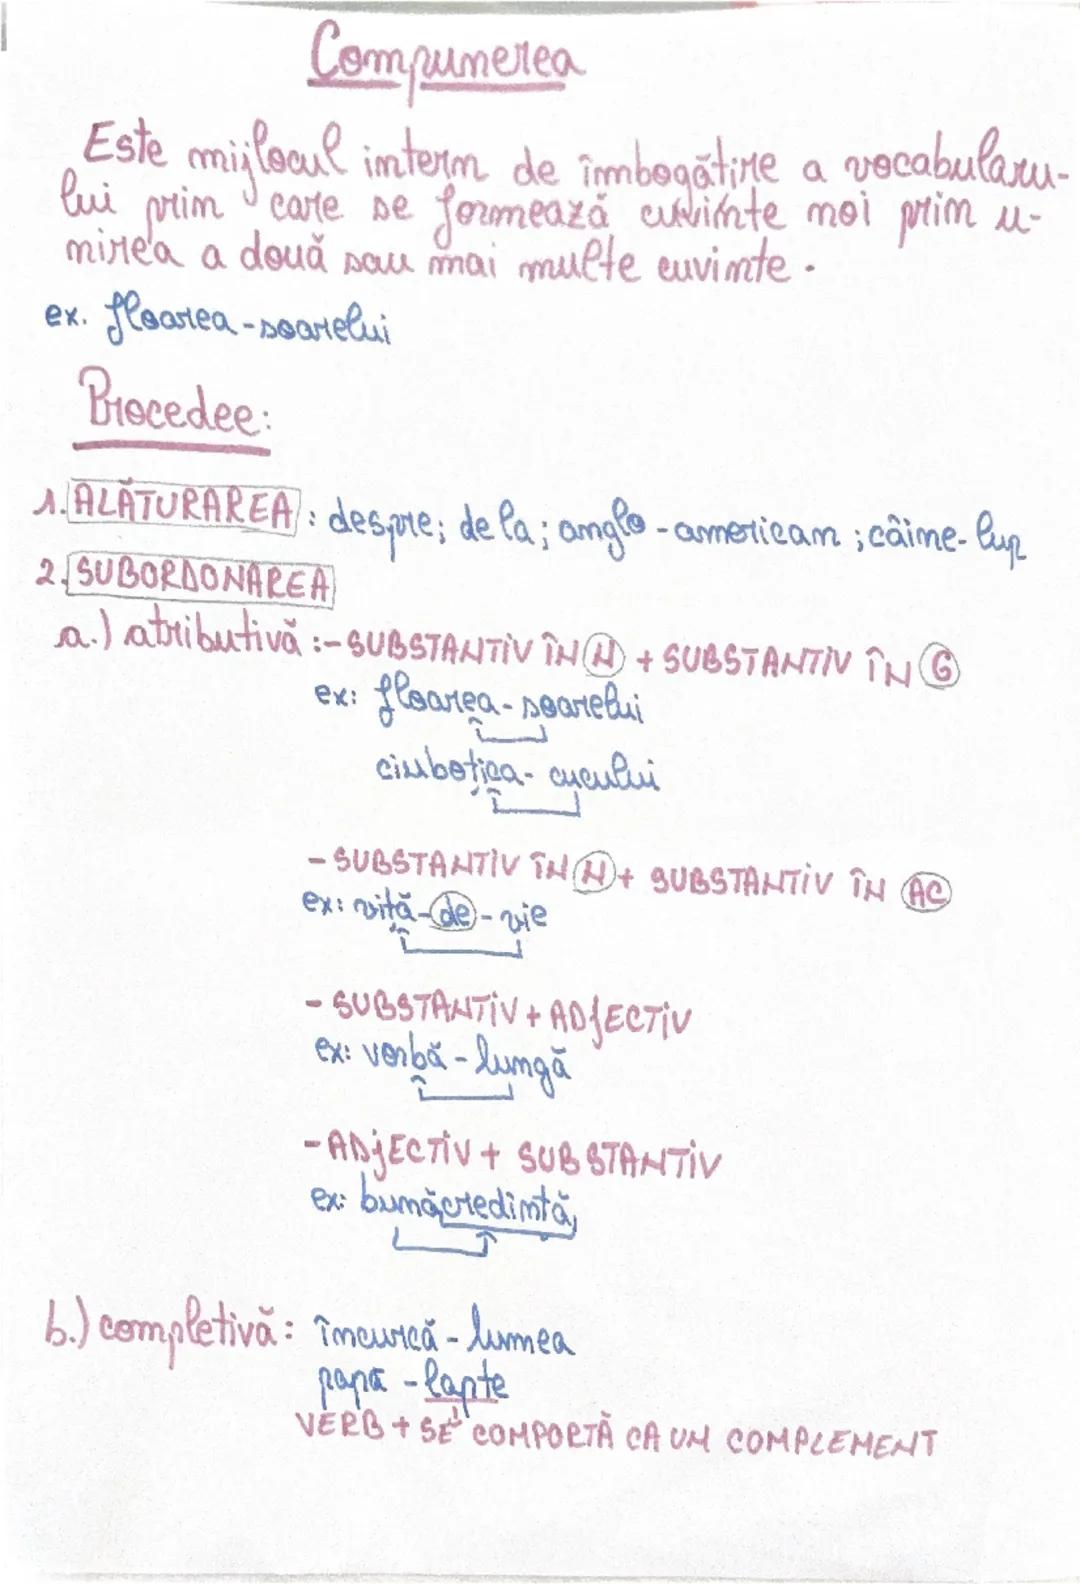 Compunerea
Este mijlocul intern de îmbogățire a vocabularu-
lui prin care se formează cuvinte noi prin u-
nirea a două sau mai multe cuvinte.
ex. floarea-soarelui
Procedee:
1. ALĂTURAREA : despre; de la; anglo-american; câine-lup
2. SUBORDONAREA
a.) atributivă :- SUBSTANTIV ÎN N + SUBSTANTIV ÎN G
ex: floarea-soarelui
ciuboțica-cucului
- SUBSTANTIV ÎN N + SUBSTANTIV ÎN AC
ex: viță-de-vie
- SUBSTANTIV + ADJECTIV
ex: vorbă-lungă
- ADJECTIV + SUBSTANTIV
ex: bunăcredință
b.) completivă: încurcă-lumea
papă-lapte
VERB + SE COMPORTĂ CA UN COMPLEMENT